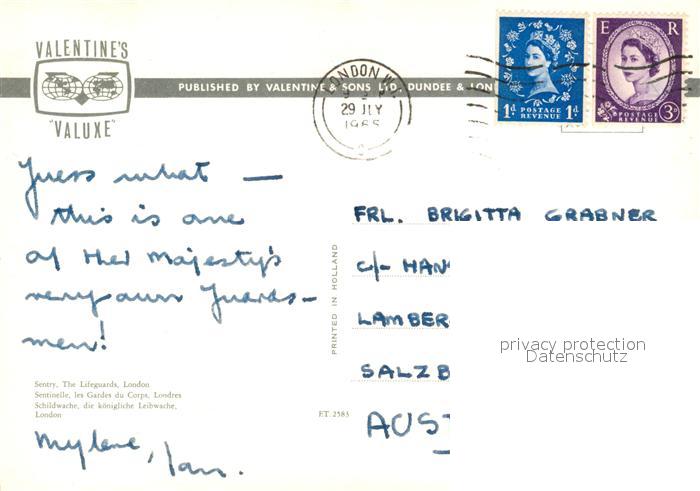 VALENTINE'S
"VALUXE"
PUBLISHED BY VALENTINE & SONS LTD, DUNDEE & LON
LONDON W.
29 JLY
1965
1D POSTAGE REVENUE 1D
E R
POSTAGE REVENUE 3D
Guess what —
this is one
of Her Majesty's
very own Guards-
men!
Sentry, The Lifeguards, London
Sentinelle, les Gardes du Corps, Londres
Schildwache, die königliche Leibwache,
London
F.T. 2583
Mylene, Ian.
PRINTED IN HOLLAND
FRL. BRIGITTA GRABNER
c/- HAN
LAMBER
SALZB
AUST
privacy protection
Datenschutz